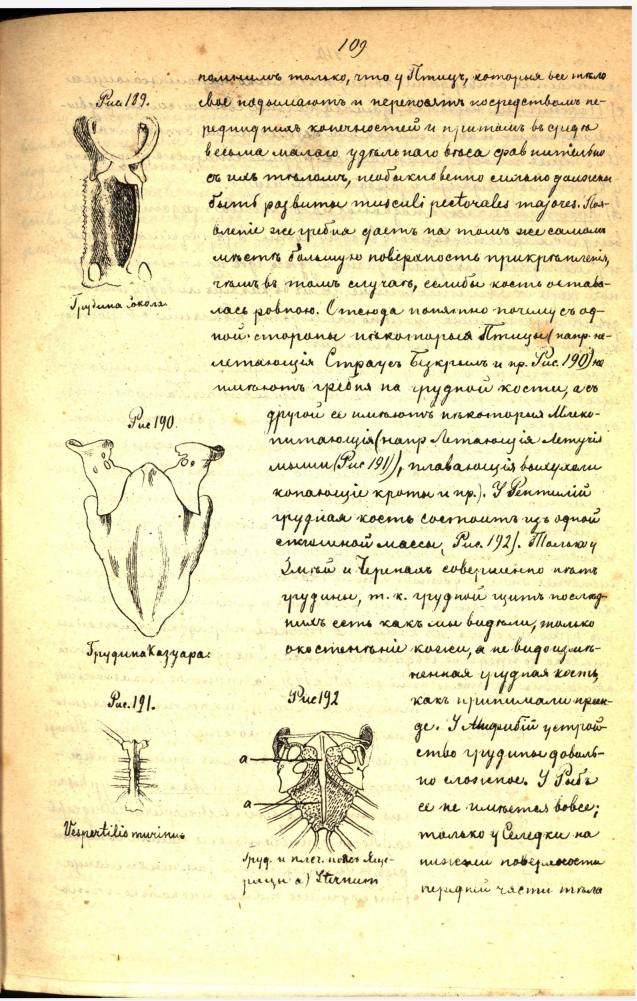 109
помнимъ только, что у Птицъ, которыя все тѣло
свое подымаютъ и переносятъ посредствомъ пе-
реднихъ конечностей и притомъ въ средѣ
весьма малаго удѣльнаго вѣса сравнительно
съ ихъ тѣломъ, необыкновенно сильно должны
быть развиты musculi pectorales majores. Поя-
вленіе же гребня даетъ на томъ же самомъ
мѣстѣ большую поверхность прикрѣпленія,
чѣмъ въ томъ случаѣ, еслибы кость остава-
лась ровною. Отсюда понятно почему съ од-
ной стороны нѣкоторыя Птицы (напр. не-
летающія Страусъ Безкрылъ и пр. Рис. 190) не
имѣютъ гребня на грудной кости, а съ
другой ее имѣютъ нѣкоторыя Млеко-
питающія (напр Летающія Летучія
мыши (Рис 191)), плавающія выхухоли
копающіе кроты и пр.). У Рептилій
грудная кость состоитъ изъ одной
сплошной массы, Рис. 192). Только у
Змѣй и Черепахъ совершенно нѣтъ
грудины, т. к. грудной щитъ послѣд-
нихъ есть какъ мы видѣли, только
окостенѣніе кожи, а не видоизмѣ-
ненная грудная кость,
какъ принимали преж-
де. У Амфибій устрой-
ство грудины доволь-
но сложное. У Рыбъ
ее не имѣется вовсе;
только у Селедки на
нижней поверхности
передней части тѣла
Рис. 189.
Грудина Сокола.
Рис 190.
Грудина Казуара.
Рис. 191.
Vespertilio murinus
Рис 192
а
а
Груд. и плеч. поясъ Яще-
рицы а) Sternum